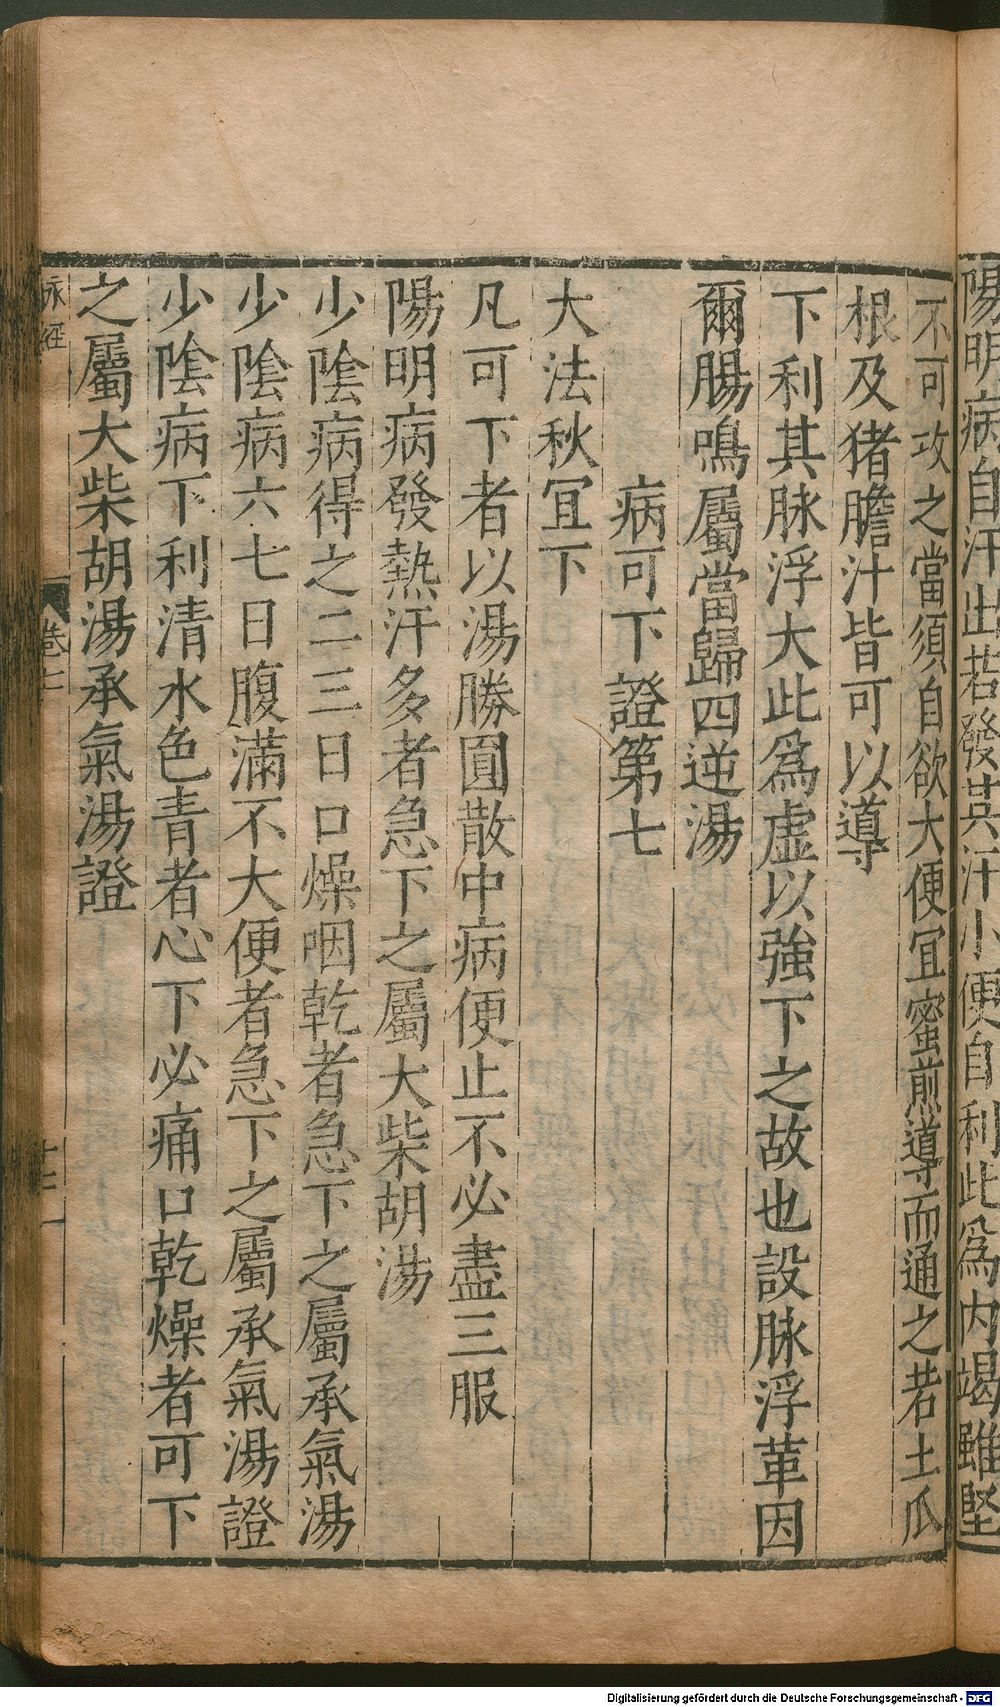 陽明病自汗出若發其汗小便自利此爲内竭雖堅
不可攻之當須自欲大便宜蜜煎導而通之若土瓜
根及猪膽汁皆可以導
下利其脉浮大此爲虚以強下之故也設脉浮革因
爾腸鳴屬當歸四逆湯
病可下證第七
大法秋宜下
凡可下者以湯勝圓散中病便止不必盡三服
陽明病發熱汗多者急下之屬大柴胡湯
少陰病得之二三日口燥咽乾者急下之屬承氣湯
少陰病六七日腹滿不大便者急下之屬承氣湯證
少陰病下利清水色青者心下必痛口乾燥者可下
之屬大柴胡湯承氣湯證
脉經
卷七
Digitalisierung gefördert durch die Deutsche Forschungsgemeinschaft - DFG